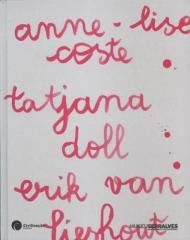 anne-lise
coste
tatjana
doll
erik van
lieshout
MUSEUSERRALVES